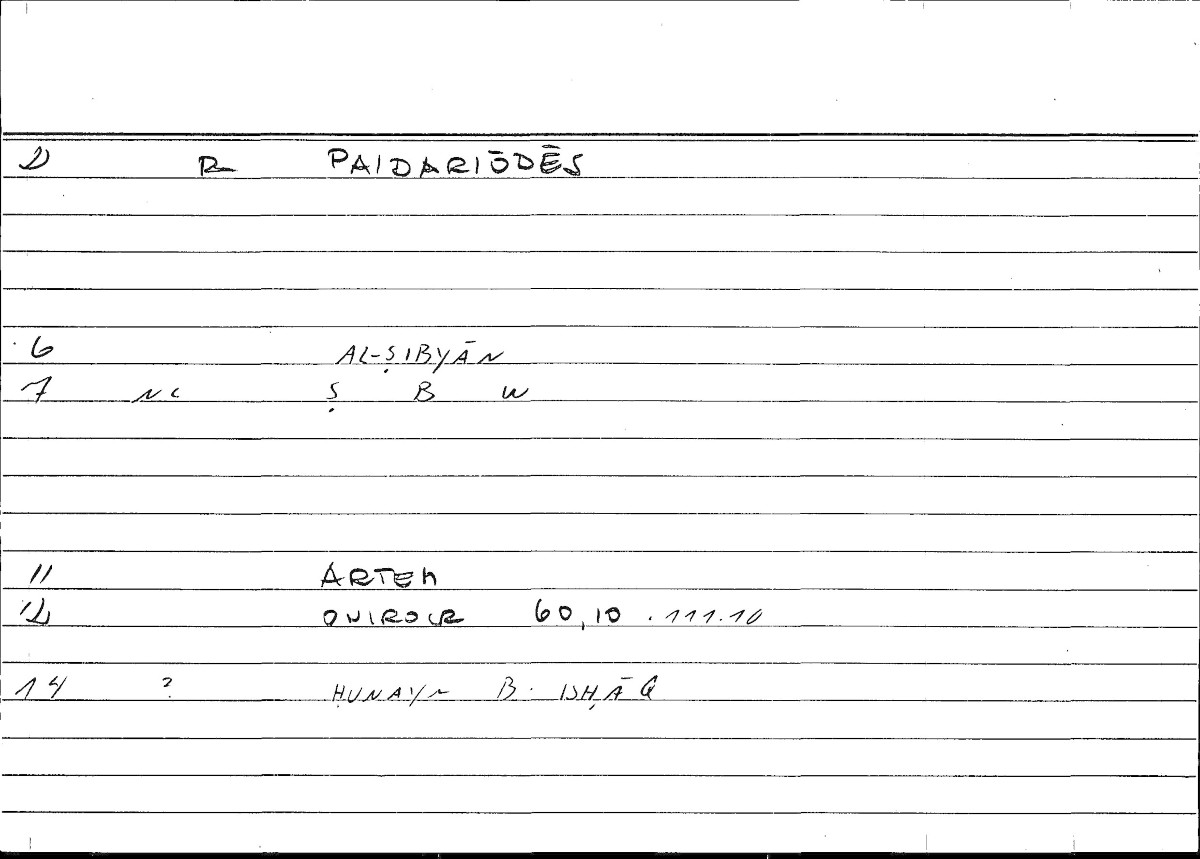 2 R PAIDARIŌDĒS
6 AL-ṢIBYĀN
7 NC Ṣ B W
11 ARTEM
12 ONIROCR 60,10 . 111.10
14 ? ḤUNAYN B. ISḤĀQ